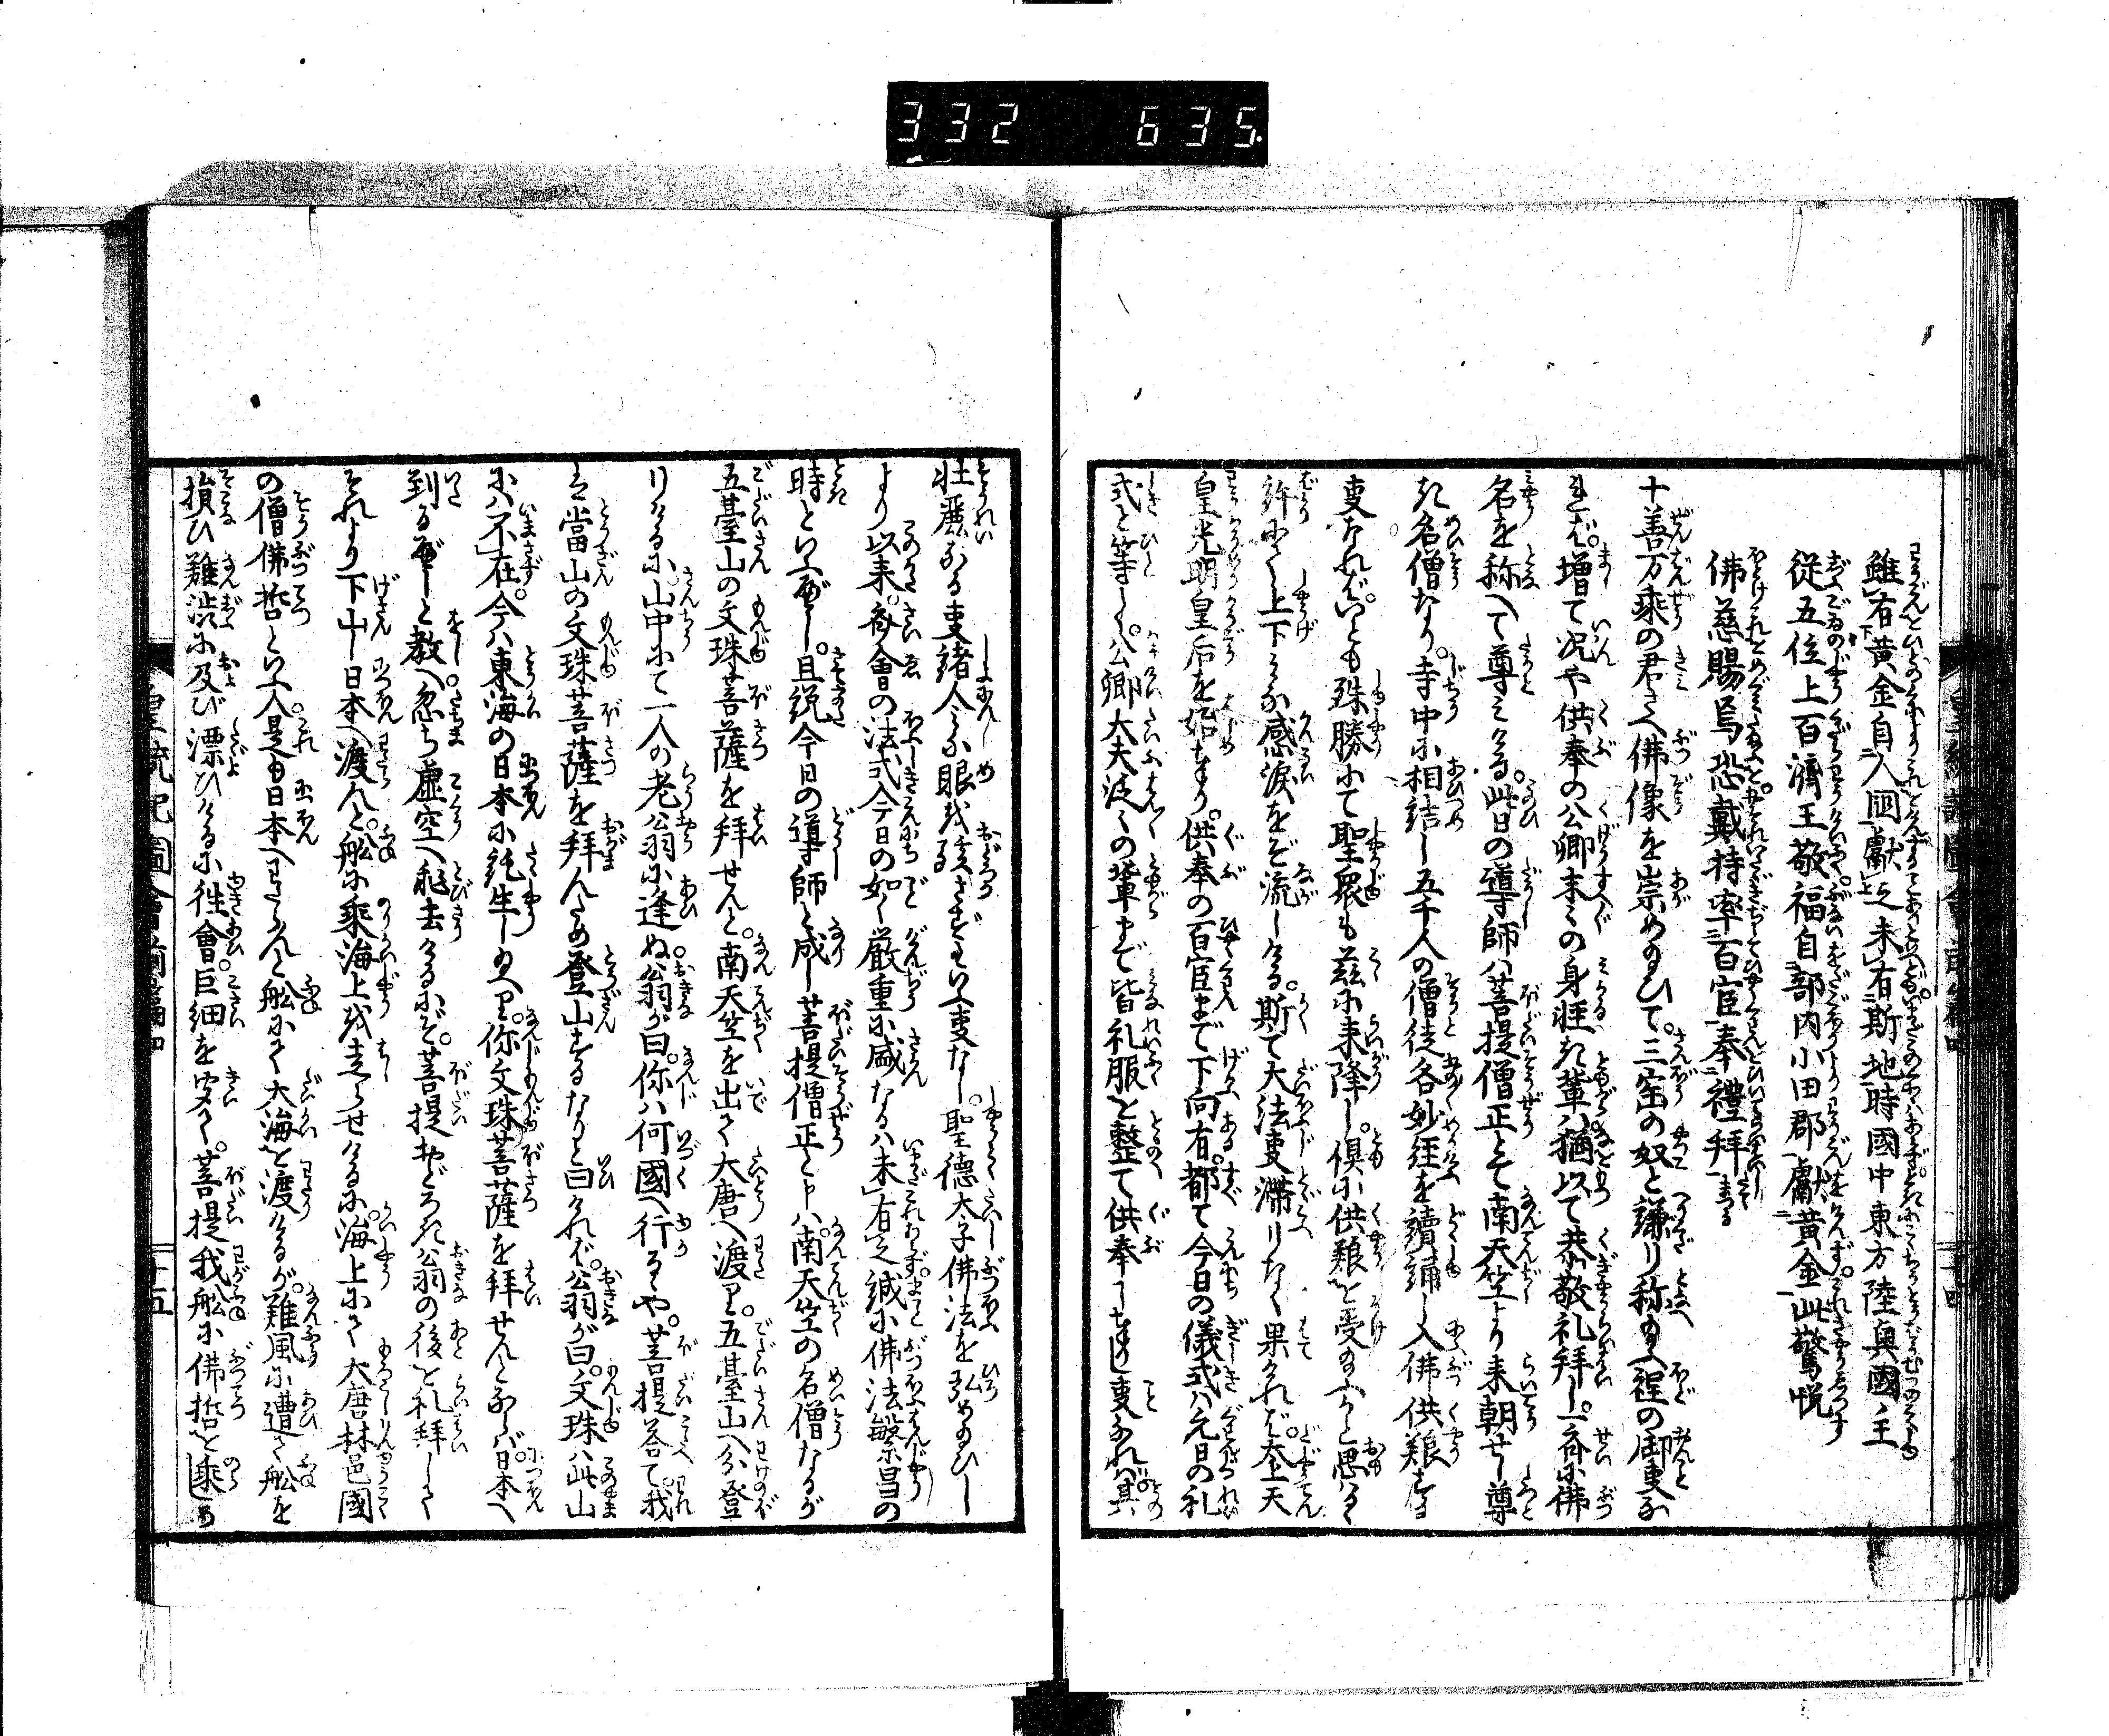 332 635
雖有黄金自人国獻之未有斯地時國中東方陸奥國主
従五位上百濟王敬福自部内小田郡獻黄金此驚悦
佛慈賜焉恐戴持率百官奉禮拜まつる
十善万乗の君さへ佛像を崇めゐひて三宝の奴と謙り称ゐへ程の御叓な
れば増て况や供奉の公卿末々の身軽き輩ハ猶以て恭敬礼拝し一斉に佛
名を称へて尊ミける此日の導師ハ菩提僧正とて南天竺より来朝せし尊
き名僧なり寺中に相詰し五千人の僧徒各妙経を讀誦し入佛供養する
叓なれバいとも殊勝にて聖衆も茲に来降し倶に供養を受給ふかと思はく
許にて上下ミな感涙をぞ流しける斯て大法叓滞りなく果けれバ太上天
皇光明皇后を始奉り供奉の百官まで下向有都て今日の儀式ハ元日の礼
式と等しく公卿大夫泛々の輩まで皆礼服を整て供奉し奉る叓なれバ其
壮麗なる叓諸人ミな眼を驚さずといふ叓なし聖徳太子佛法を弘めゐひし
より以来斉會の法式今日の如く厳重に盛なるハ未有之誠に佛法繁昌の
時といふべし且説今日の導師と成し菩提僧正と申ハ南天竺の名僧なるが
五臺山の文珠菩薩を拝せんと南天竺を出て大唐へ渡り五臺山へ分登
りけるに山中にて一人の老翁に逢ぬ翁が曰你ハ何國へ行るゝや菩提答て我
ハ當山の文珠菩薩を拝んため登山するなりと曰けれバ翁が曰文珠ハ此山
にハ不在今ハ東海の日本に託生しゐへり你文珠菩薩を拝せんとならバ日本へ
到るべしと教へ忽ち虚空へ飛去けるにぞ菩提おどろき翁の後を礼拝して
それより下山し日本へ渡んと舩に乗海上を走らせけるに海上にて大唐林邑國
の僧佛哲といふ人是も日本へわたらんと舩にて大海を渡けるが難風に遭て舩を
損ひ難渋に及び漂ひけるに徃會巨細を聞て菩提我舩に佛哲を乗しめ